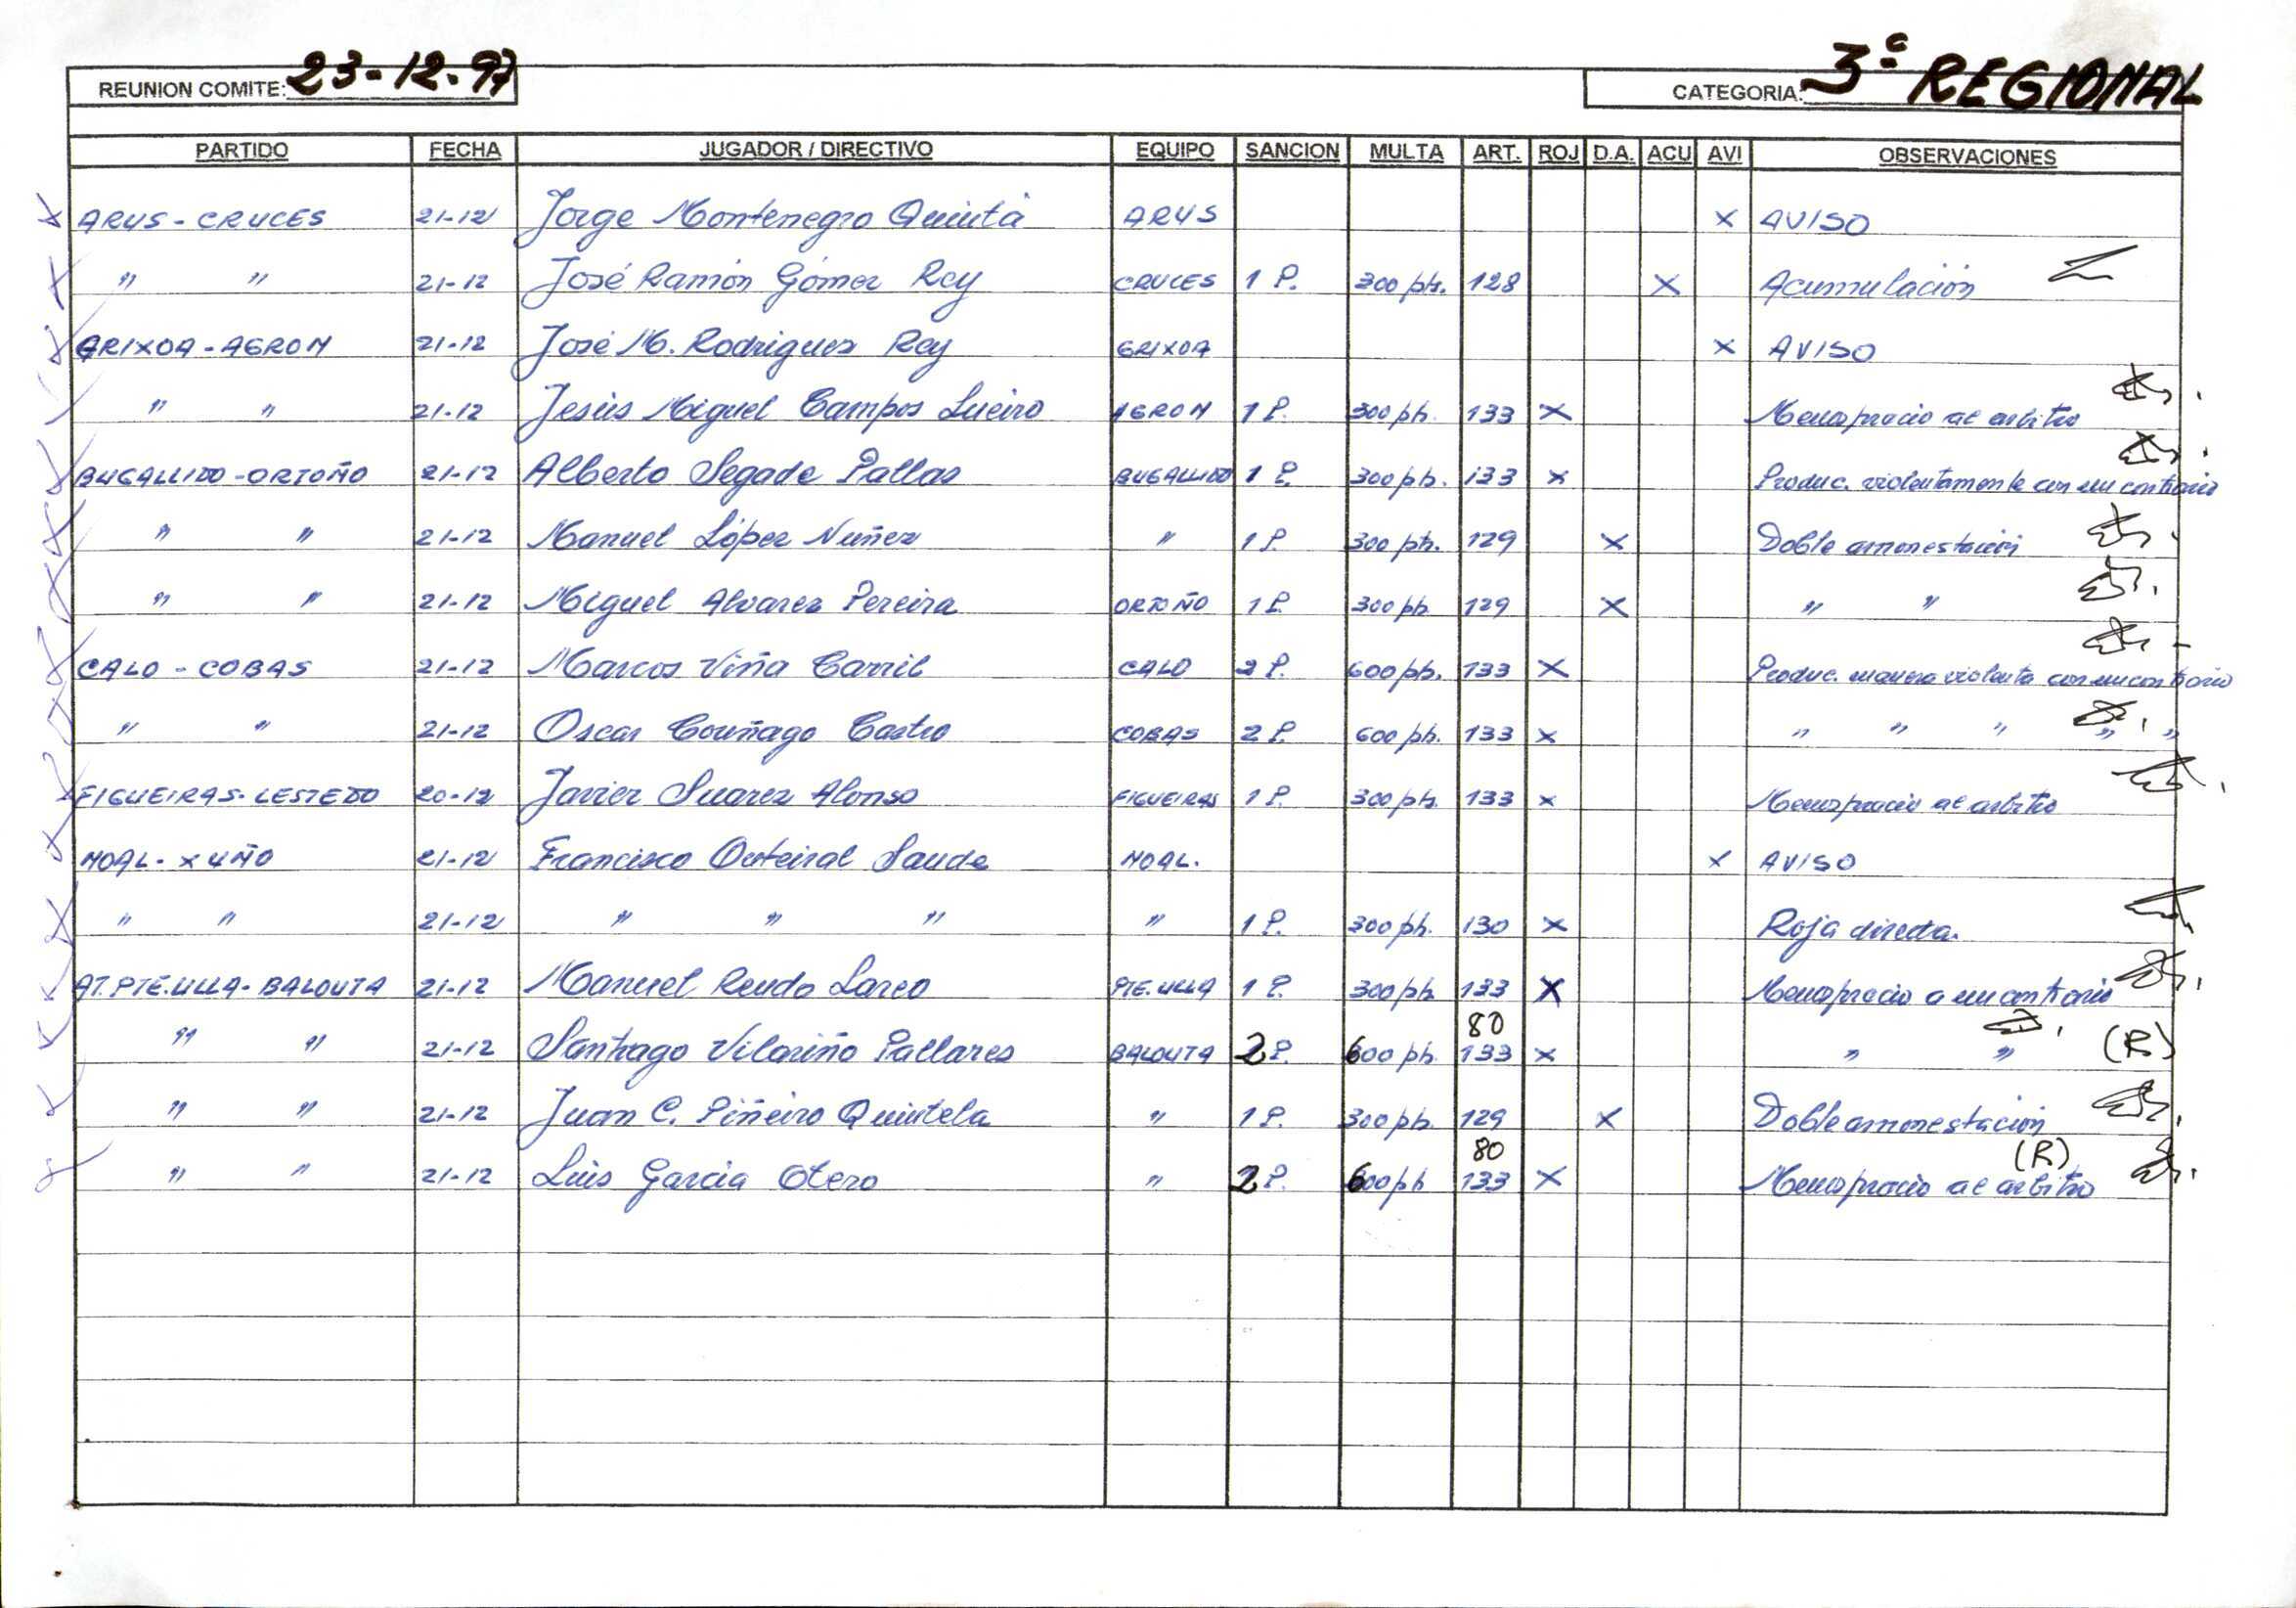 REUNION COMITE: 23-12-97 CATEGORIA: 3ª REGIONAL
PARTIDO FECHA JUGADOR / DIRECTIVO EQUIPO SANCION MULTA ART. ROJ D.A. ACU AVI OBSERVACIONES
ARUS - CRUCES 21-12 Jorge Montenegro Quintá ARUS X AVISO
" " 21-12 José Ramón Gómez Rey CRUCES 1 P. 300 pts. 128 X Acumulación
GRIXOA - AGRON 21-12 José M. Rodriguez Rey GRIXOA X AVISO
" " 21-12 Jesús Miguel Campos Lueiro AGRON 1 P. 300 pts. 133 X Menosprecio al arbitro
BUGALLIDO - ORTOÑO 21-12 Alberto Segade Pallas BUGALLIDO 1 P. 300 pts. 133 X Produc. violentamente con un contrario
" " 21-12 Manuel López Nuñez " 1 P. 300 pts. 129 X Doble amonestación
" " 21-12 Miguel Alvarez Pereira ORTOÑO 1 P. 300 pts 129 X " "
CALO - COBAS 21-12 Marcos Viña Carril CALO 2 P. 600 pts. 133 X Produc. manera violenta con un contrario
" " 21-12 Oscar Couñago Castro COBAS 2 P. 600 pts. 133 X " " " " "
FIGUEIRAS - LESTEDO 20-12 Javier Suarez Alonso FIGUEIRAS 1 P. 300 pts. 133 X Menosprecio al arbitro
NOAL - XUÑO 21-12 Francisco Outeiral Saude NOAL. X AVISO
" " 21-12 " " " " 1 P. 300 pts. 130 X Roja directa.
AT. PTE. ULLA - BALOUTA 21-12 Manuel Rendo Lareo PTE. ULLA 1 P. 300 pts. 133 X Menosprecio a un contrario
80
" " 21-12 Santiago Vilariño Pallares BALOUTA 2 P. 600 pts. 133 X " " (R)
" " 21-12 Juan C. Piñeiro Quintela " 1 P. 300 pts. 129 X Doble amonestación
80 (R)
" " 21-12 Luis Garcia Otero " 2 P. 600 pts 133 X Menosprecio al arbitro